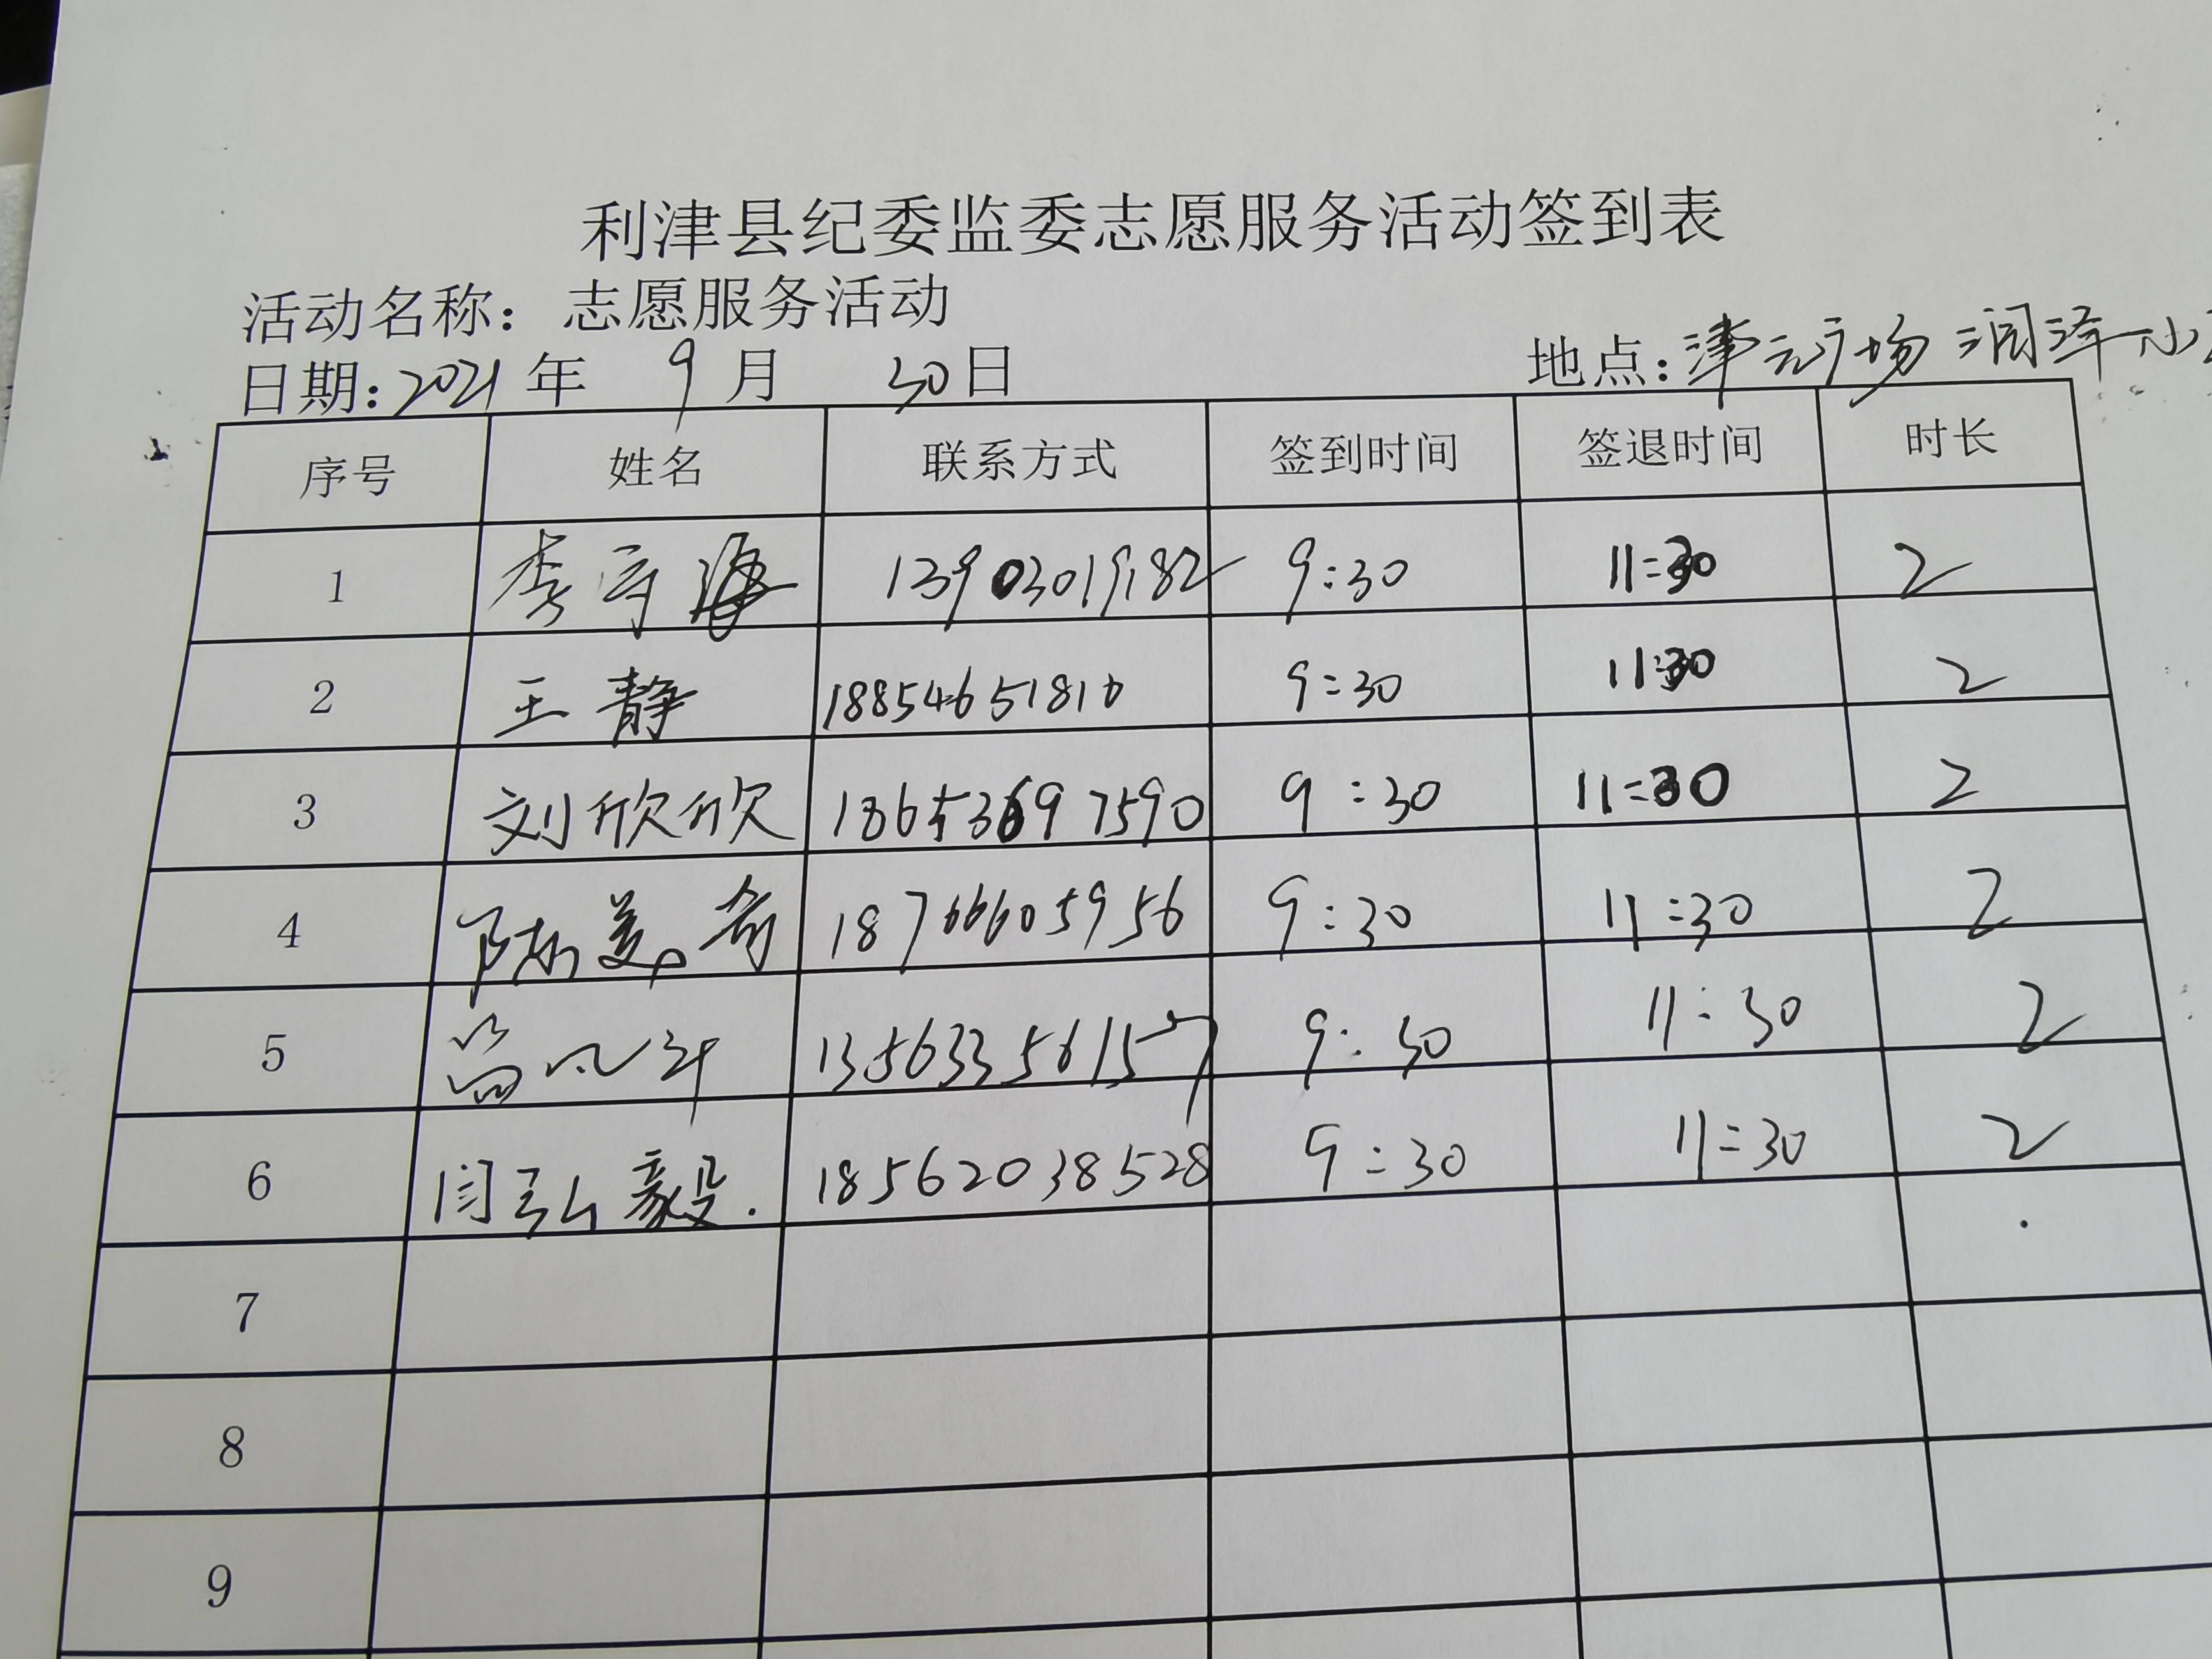 利津县纪委监委志愿服务活动签到表
活动名称：志愿服务活动
日期:2021年 9月 30日 地点:津元广场 润泽小
序号 姓名 联系方式 签到时间 签退时间 时长
1 李守海 13903019182 9:30 11:30 2
2 王静 18854651816 9:30 11:30 2
3 刘欣欣 18653697590 9:30 11:30 2
4 陈美奇 18766605956 9:30 11:30 2
5 13563356157 9:30 11:30 2
6 闫弘毅. 18562038528 9:30 11:30 2
7
8
9